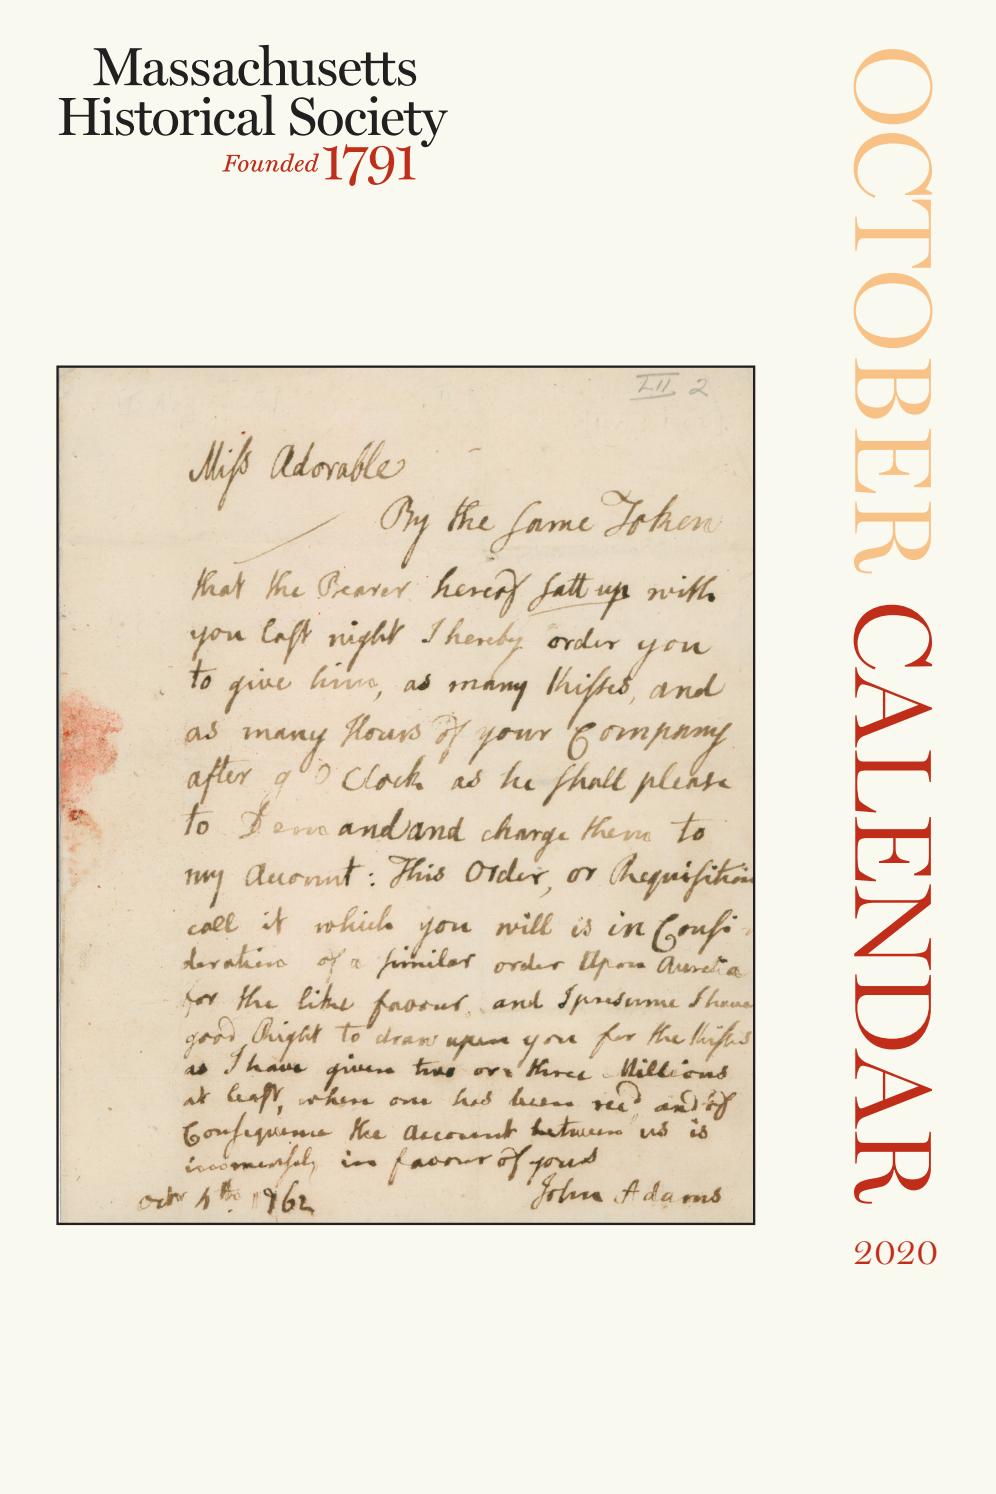 Massachusetts
Historical Society
Founded 1791
OCTOBER CALENDAR
2020
LII 2
Miſs Adorable
By the ſame Token
that the Bearer hereof ſatt up with
you laſt night I hereby order you
to give him, as many Kiſses, and
as many Hours of your Company
after 9 O Clock as he ſhall pleaſe
to Demand and charge them to
my Account: This Order, or Requiſition
call it which you will is in Conſi-
deration of a ſimilar order Upon Aurelia
for the like favour, and I preſume I have
good Right to draw upon you for the Kiſses
as I have given two or three Millions
at leaſt, when one has been recd, and of
Conſequence the Account between us is
immenſely in favour of yours
John Adams
Octr 4th. 1762